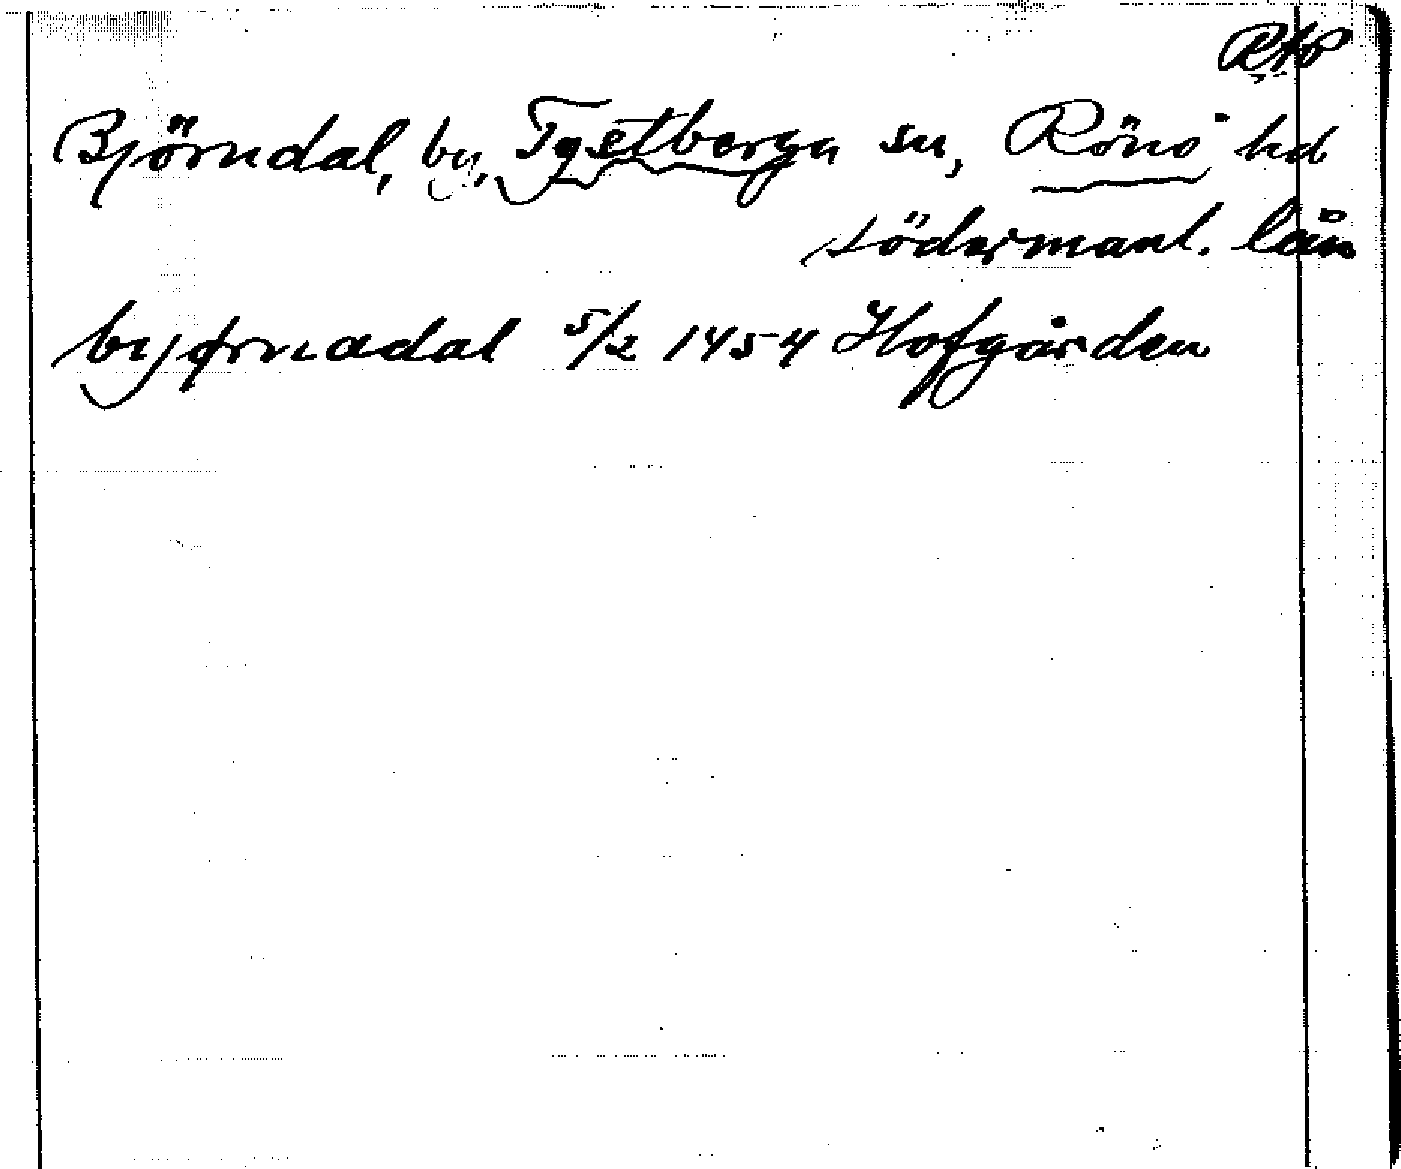 RAp
Björndal, by, Tystberga sn, Rönö hd
Södermanl. län
byørnadal 5/2 1454 Hofgården